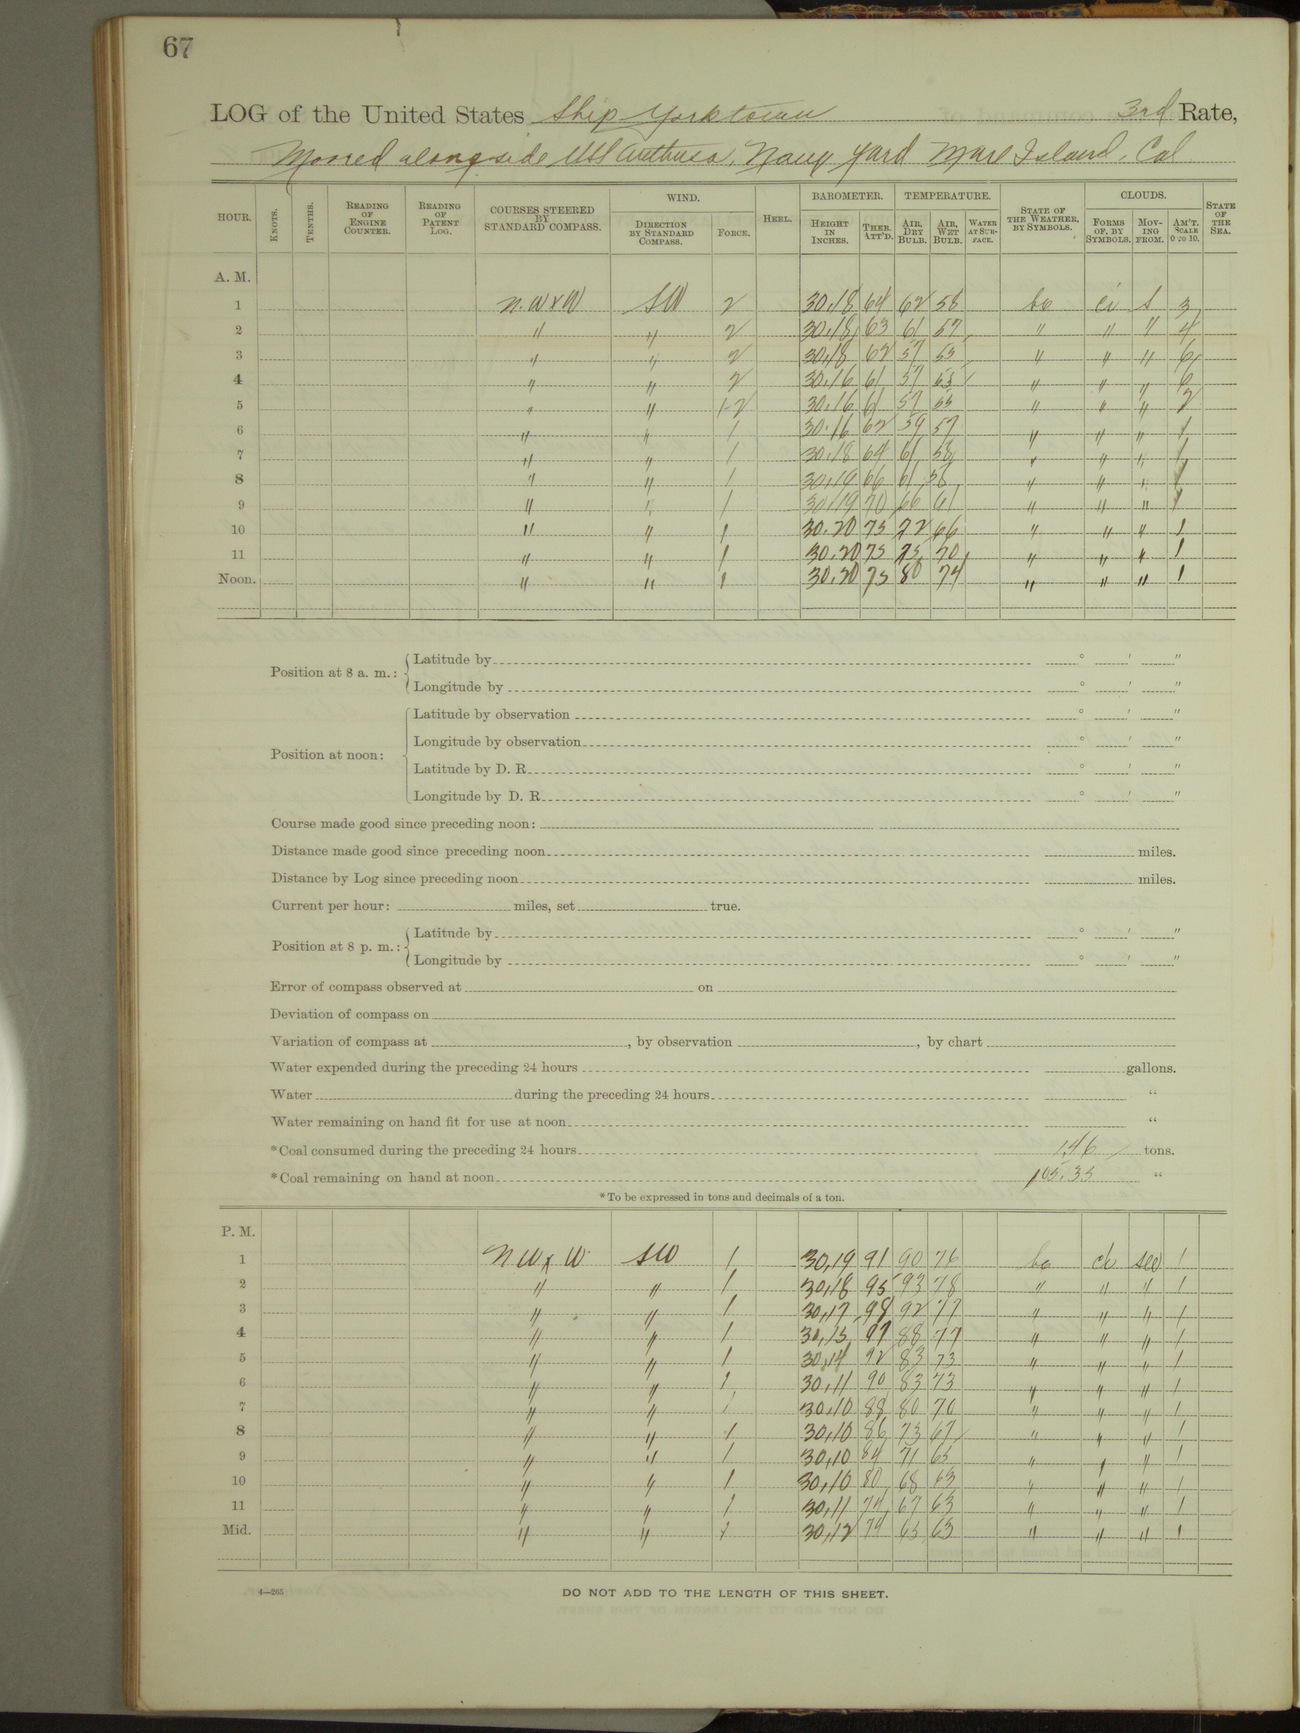 67
LOG of the United States Ship Yorktown 3rd Rate,
Moored alongside USS Arethusa, Navy Yard Mare Island, Cal
HOUR. KNOTS. TENTHS. READING OF ENGINE COUNTER. READING OF PATENT LOG. COURSES STEERED BY STANDARD COMPASS. WIND. DIRECTION BY STANDARD COMPASS. FORCE. HEEL. BAROMETER. HEIGHT IN INCHES. THER. ATT'D. TEMPERATURE. AIR, DRY BULB. AIR, WET BULB. WATER AT SURFACE. STATE OF THE WEATHER, BY SYMBOLS. CLOUDS. FORMS OF, BY SYMBOLS. MOVING FROM. AM'T. SCALE 0 TO 10. STATE OF THE SEA.
A. M.
1 N.W x W SW 2 30.18 64 62 58 bc ci S 3
2 " " 2 30.18 63 61 57 " " " 4
3 " " 2 30.18 62 57 53 " " " 6
4 " " 2 30.16 61 57 53 " " " 6
5 " " 1-2 30.16 61 57 55 " " " 2
6 " " 1 30.16 62 59 57 " " " 1
7 " " 1 30.18 64 61 58 " " " 1
8 " " 1 30.19 66 61 58 " " " 1
9 " " 1 30.19 70 66 61 " " " 1
10 " " 1 30.20 73 72 66 " " " 1
11 " " 1 30.20 75 75 70 " " " 1
Noon. " " 1 30.20 75 80 74 " " " 1
Position at 8 a. m.: Latitude by ° ' "
Longitude by ° ' "
Position at noon: Latitude by observation ° ' "
Longitude by observation ° ' "
Latitude by D. R. ° ' "
Longitude by D. R. ° ' "
Course made good since preceding noon:
Distance made good since preceding noon miles.
Distance by Log since preceding noon miles.
Current per hour: miles, set true.
Position at 8 p. m.: Latitude by ° ' "
Longitude by ° ' "
Error of compass observed at on
Deviation of compass on
Variation of compass at , by observation , by chart
Water expended during the preceding 24 hours gallons.
Water during the preceding 24 hours "
Water remaining on hand fit for use at noon "
*Coal consumed during the preceding 24 hours 1.46 tons.
*Coal remaining on hand at noon 105.35 "
*To be expressed in tons and decimals of a ton.
P. M.
1 N W x W SW 1 30.19 91 90 76 bc ci SW 1
2 " " 1 30.18 95 93 78 " " " 1
3 " " 1 30.17 98 92 77 " " " 1
4 " " 1 30.15 97 88 77 " " " 1
5 " " 1 30.14 92 83 73 " " " 1
6 " " 1 30.11 90 83 73 " " " 1
7 " " 1 30.10 88 80 70 " " " 1
8 " " 1 30.10 86 73 67 " " " 1
9 " " 1 30.10 84 71 65 " " " 1
10 " " 1 30.10 80 68 63 " " " 1
11 " " 1 30.11 74 67 63 " " " 1
Mid. " " 1 30.12 74 65 63 " " " 1
4—265 DO NOT ADD TO THE LENGTH OF THIS SHEET.